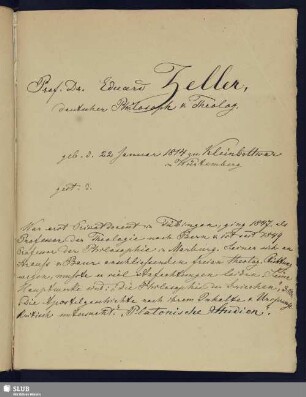 Prof. Dr. Eduard Zeller,
deutscher Philosoph u. Theolog.
geb. d. 22 Januar 1814 zu Kleinbottwar
in Würtemberg
gest. d.
War erst Privatdocent in Tübingen, ging 1847 als
Professor der Theologie nach Bern u. ist seit 1849
Professor der Philosophie in Marburg. Seiner sich an
Strauß u. Baur anschliessenden freien theolog. Richtung
wegen, mußte er viel Anfechtungen leiden. Seine
Hauptwerke sind: Die Philosophie der Griechen, 3 Bde
Die Apostelgeschichte nach ihrem Inhalte u. Ursprung
kritisch untersucht. Platonische Studien.
SLUB